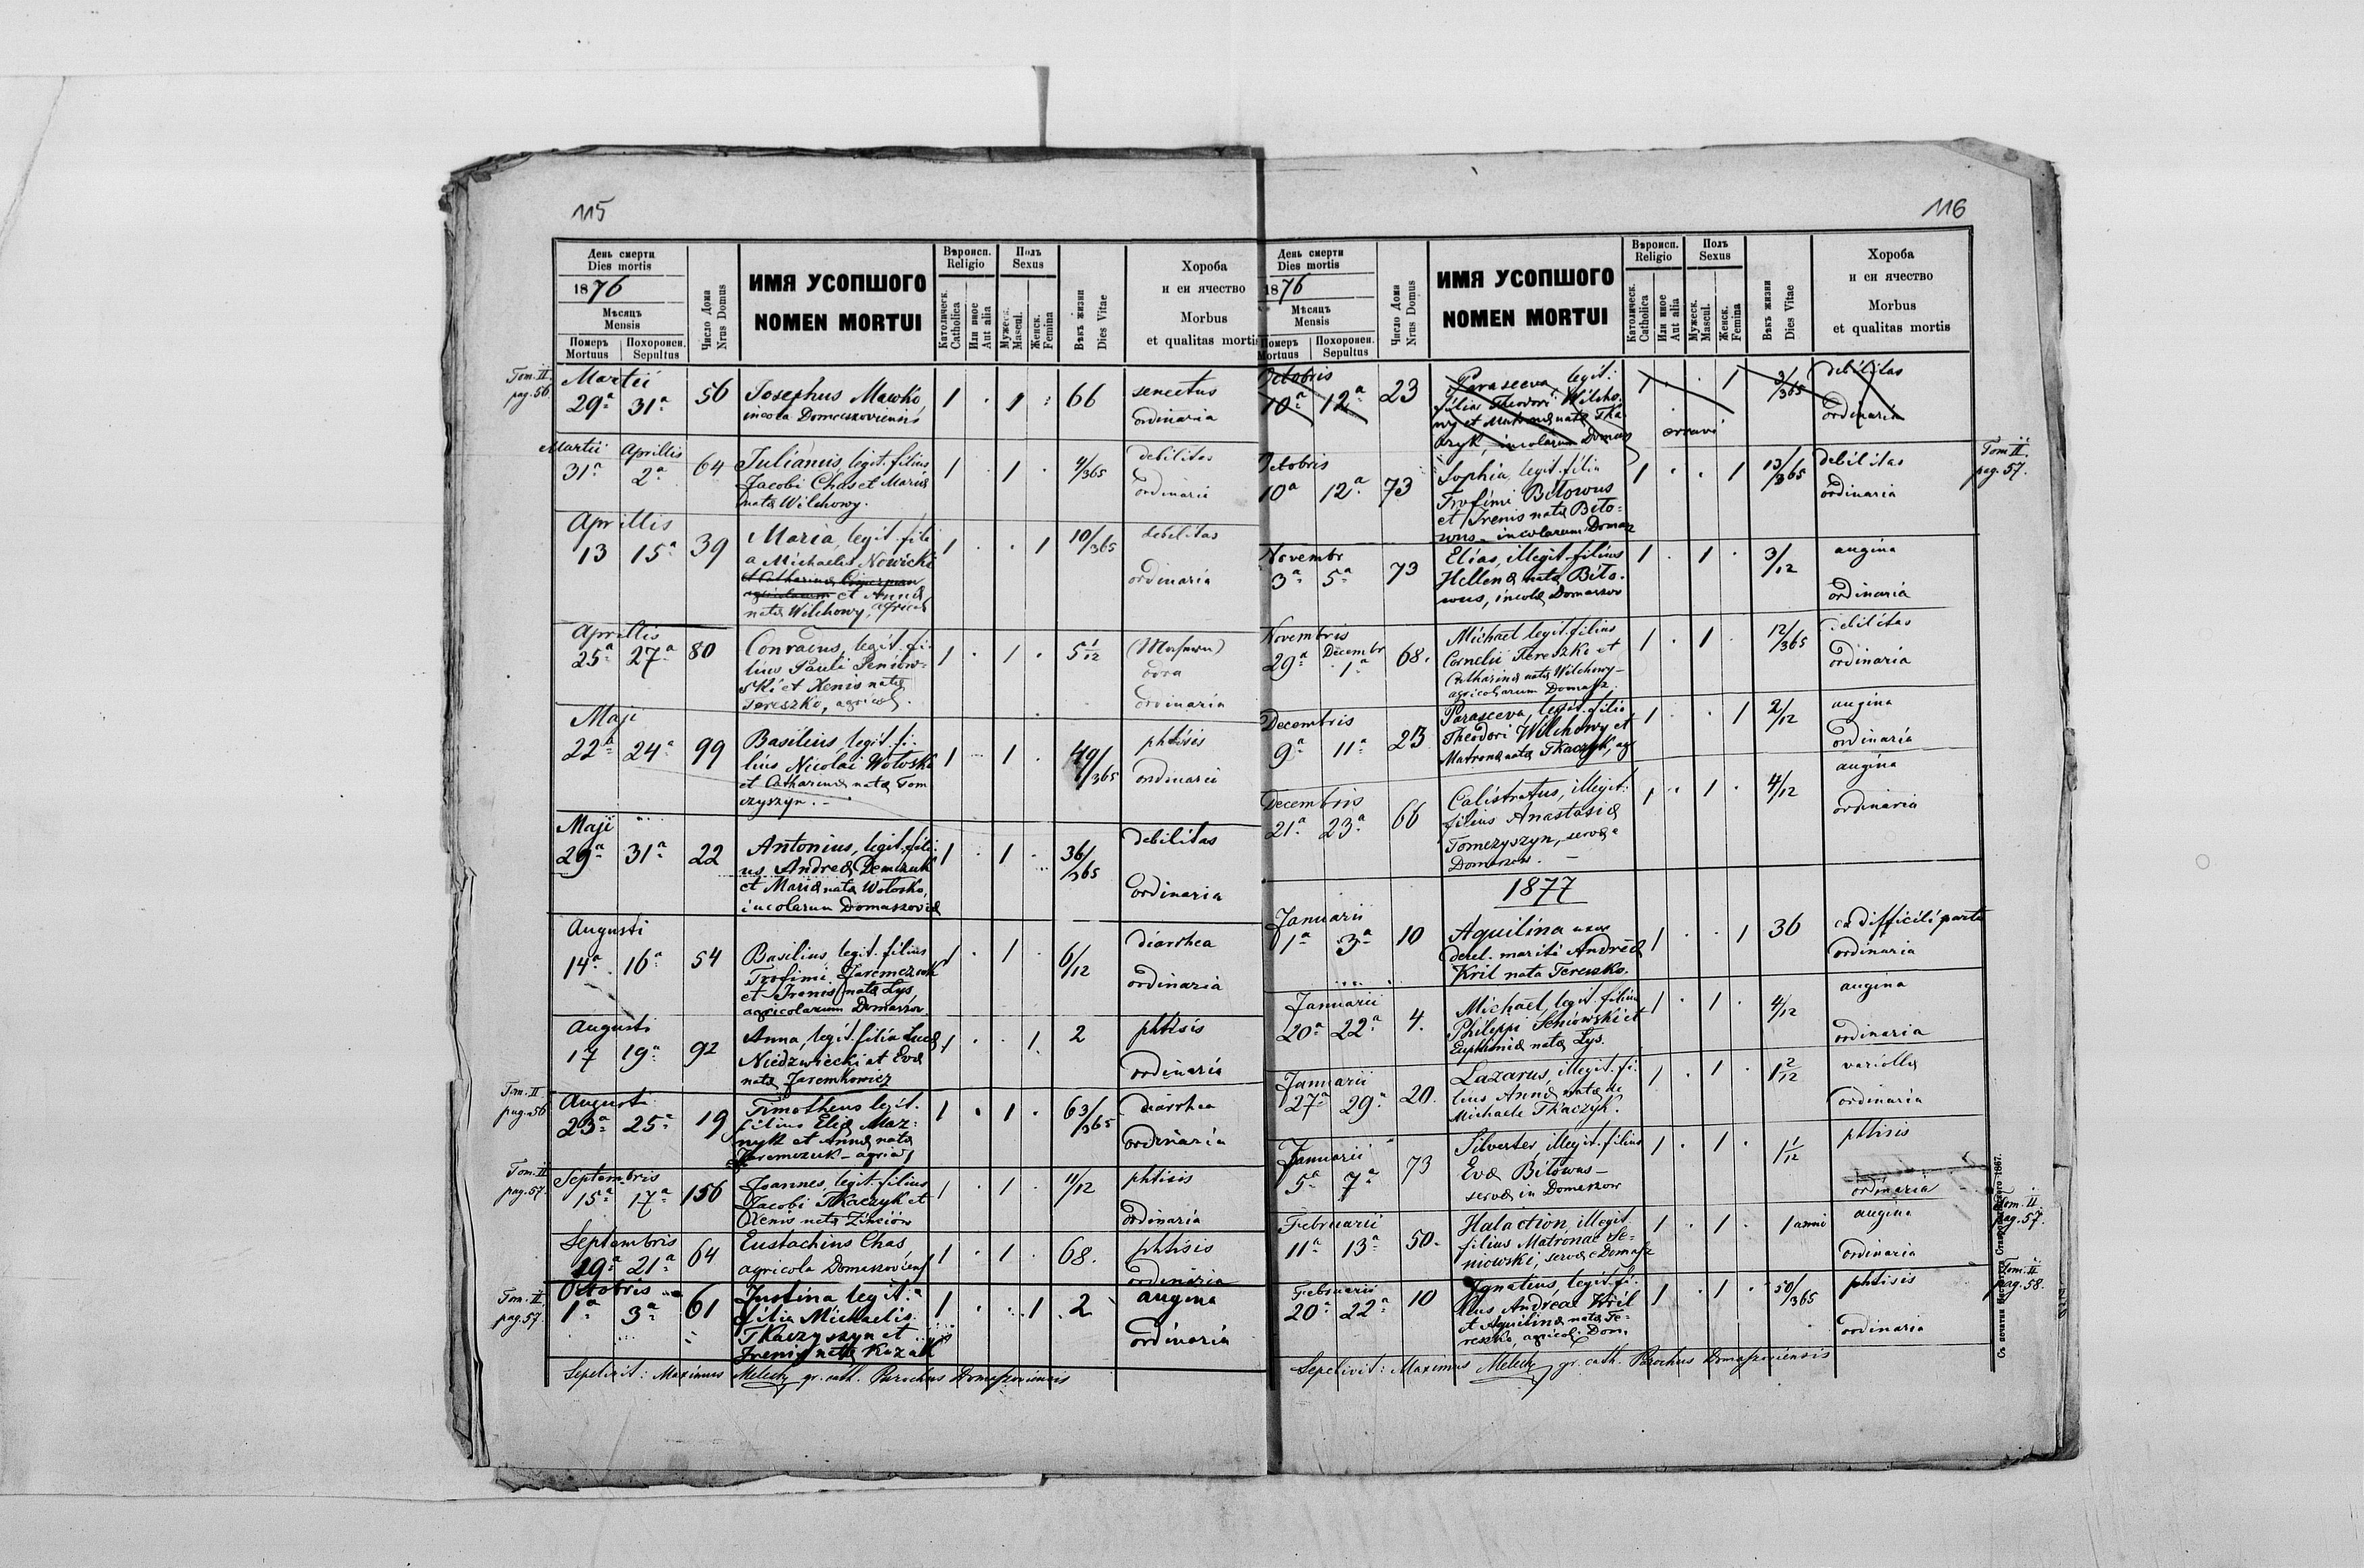 115
День смерти
Dies mortis
1876
Мѣсяць
Mensis
Померъ
Mortuus
Похоронен.
Sepultus
Число Дома
Nrus Domus
ИМЯ УСОПШОГО
NOMEN MORTUI
Вѣроисп.
Religio
Католическ.
Catholica
Или иное
Aut alia
Полъ
Sexus
Мужеск.
Mascul.
Женск.
Femina
Вѣкъ жизни
Dies Vitae
Хороба
и еи ячество
Morbus
et qualitas mortis
Tom. II.
pag. 56.
Martii
29ª 31ª 56 Josephus Mawko 1 . 1 . 66 senectus
incola Domaszoviensis ordinaria
Martii Aprillis
31ª 2ª 64 Julianus, legit. filius 1 . 1 . 4/365 debilitas
Jacobi Chas et Mariæ ordinaria
natæ Wilchowy.
Aprillis
13 15ª 39 Maria, legit. fili 1 . . 1 10/365 debilitas
a Michaelis Nowicki
et Annæ ordinaria
natæ Wilchowy, agricol
Aprillis
25ª 27ª 80 Conradus, legit. fi- 1 . 1 . 5 1/12
lius Pauli Seniow-
ski et Xenis natæ
Tereszko, agricol. ordinaria
Maji
22ª 24ª 99 Basilius, legit. fi- 1 . 1 . phtisis
lius Nicolai Wotosko ordinaria
et Catharinæ natæ Tom
czyszyn. -
Maji
29ª 31ª 22 Antonius, legit. fili- 1 . 1 . 36/365 debilitas
us Andreæ Demczuk
et Mariæ natæ Wotosko, ordinaria
incolarum Domaszoviæ
Augusti
14ª 16ª 54 Basilius, legit. filius 1 . 1 . 6/12 diarrhea
Trofimi Jaremczuk
et Irenis natæ Lys ordinaria
agricolarum Domaszov.
Augusti
17 19ª 92 Anna, legit. filia Lucæ 1 . . 1 2 phtisis
Niedzwiecki et Evæ ordinaria
natæ Jaremkowicz
Tom. II
pag. 56
Augusti
23ª 25ª 19 Timotheus legit. 1 . 1 . 63/365 diarrhea
filius Eliæ Maz-
nyk et Annæ natæ ordinaria
Jaremczuk - agricol
Tom. II
pag. 57.
Septembris
15ª 17ª 156 Joannes, legit. filius 1 . 1 . 11/12 phtisis
Jacobi Tkaczyk et
Xenis natæ ordinaria
Septembris
19ª 21ª 64 Eustachius Chas 1 . 1 . 68. phtisis
agricola Domaszoviens ordinaria
Tom. II.
pag. 57.
Octobris
1ª 3ª 61 Justina legit. 1 . . 1 2 angina
filia Michaelis
Tkaczyszyn et ordinaria
Irenis natæ Kozak
Sepelivit: Maximus Melech gr. cath. Parochus Domaszoviensis
116
День смерти
Dies mortis
1876
Мѣсяць
Mensis
Померъ
Mortuus
Похоронен.
Sepultus
Число Дома
Nrus Domus
ИМЯ УСОПШОГО
NOMEN MORTUI
Вѣроисп.
Religio
Католическ.
Catholica
Или иное
Aut alia
Полъ
Sexus
Мужеск.
Mascul.
Женск.
Femina
Вѣкъ жизни
Dies Vitae
Хороба
и еи ячество
Morbus
et qualitas mortis
Octobris
10ª 12ª 23 Parasceva, legit. 1 . . 1 3/365 debilitas
filia Theodori Wilcho-
wy et Matronæ natæ Tka- ordinaria
czyk, incolarum Domasz erravi
Tom II.
pag. 57.
Octobris
10ª 12ª 73 Sophia, legit. filia 1 . . 1 13/365 debilitas
Trofimi Bitowus ordinaria
et Irenis natæ Bito-
wus - incolarum Domasz
Novembr
3ª 5ª 73 Elias, illegit. filius 1 . 1 . 3/12 angina
Hellenæ natæ Bito-
wus, incolæ Domaszov ordinaria
Novembris Decembr
29ª 1ª 68. Michael legit. filius 1 . 1 . 12/365 debilitas
Cornelii Tereszko et ordinaria
Catharinæ natæ Wilchowy -
agricolarum Domasz.
Decembris
9ª 11ª 23 Parasceva, legit. filia 1 . . 1 2/12 angina
Theodori Wilchowy et ordinaria
Matronæ natæ Tkaczyk, ag
Decembris
21ª 23ª 66 Calistratus, illegit. 1 . 1 . 4/12 angina
filius Anastasiæ ordinaria
Tomczyszyn, servæ
Domaszov. -
1877
Januarii
1ª 3ª 10 Aquilina uxor 1 . . 1 36 ex difficili partu
derel. mariti Andreæ ordinaria
Kril nata Tereszko.
Januarii
20ª 22ª 4. Michaël, legit. filius 1 . 1 . 4/12 angina
Philippi Seniowski et
Euphimiæ natæ Lys. ordinaria
Januarii
27ª 29ª 20. Lazarus, illegit. fi- 1 . 1 . 1 2/12 variolla
lius Annæ natæ de ordinaria
Michaele Tkaczyk.
Januarii
5ª 7ª 73 Silvester, illegit. filius 1 . 1 . 1 1/12 phtisis
Evæ Bitowus -
servæ in Domaszow ordinaria
Tom. II
pag. 57.
Februarii
11ª 13ª 50. Halaction, illegit. 1 . 1 . 1 anni angina
filius Matronae Se-
niowski, servæ Domasz ordinaria
Tom. II
pag. 58.
Februarii
20ª 22ª 10 Ignatius, legit. fi- 1 . 1 . 50/365 phtisis
lius Andreae Kril
et Aquilinæ natæ Te- ordinaria
reszko, agricol. Dom.
Sepelivit: Maximus Melech gr. cath. Parochus Domaszoviensis